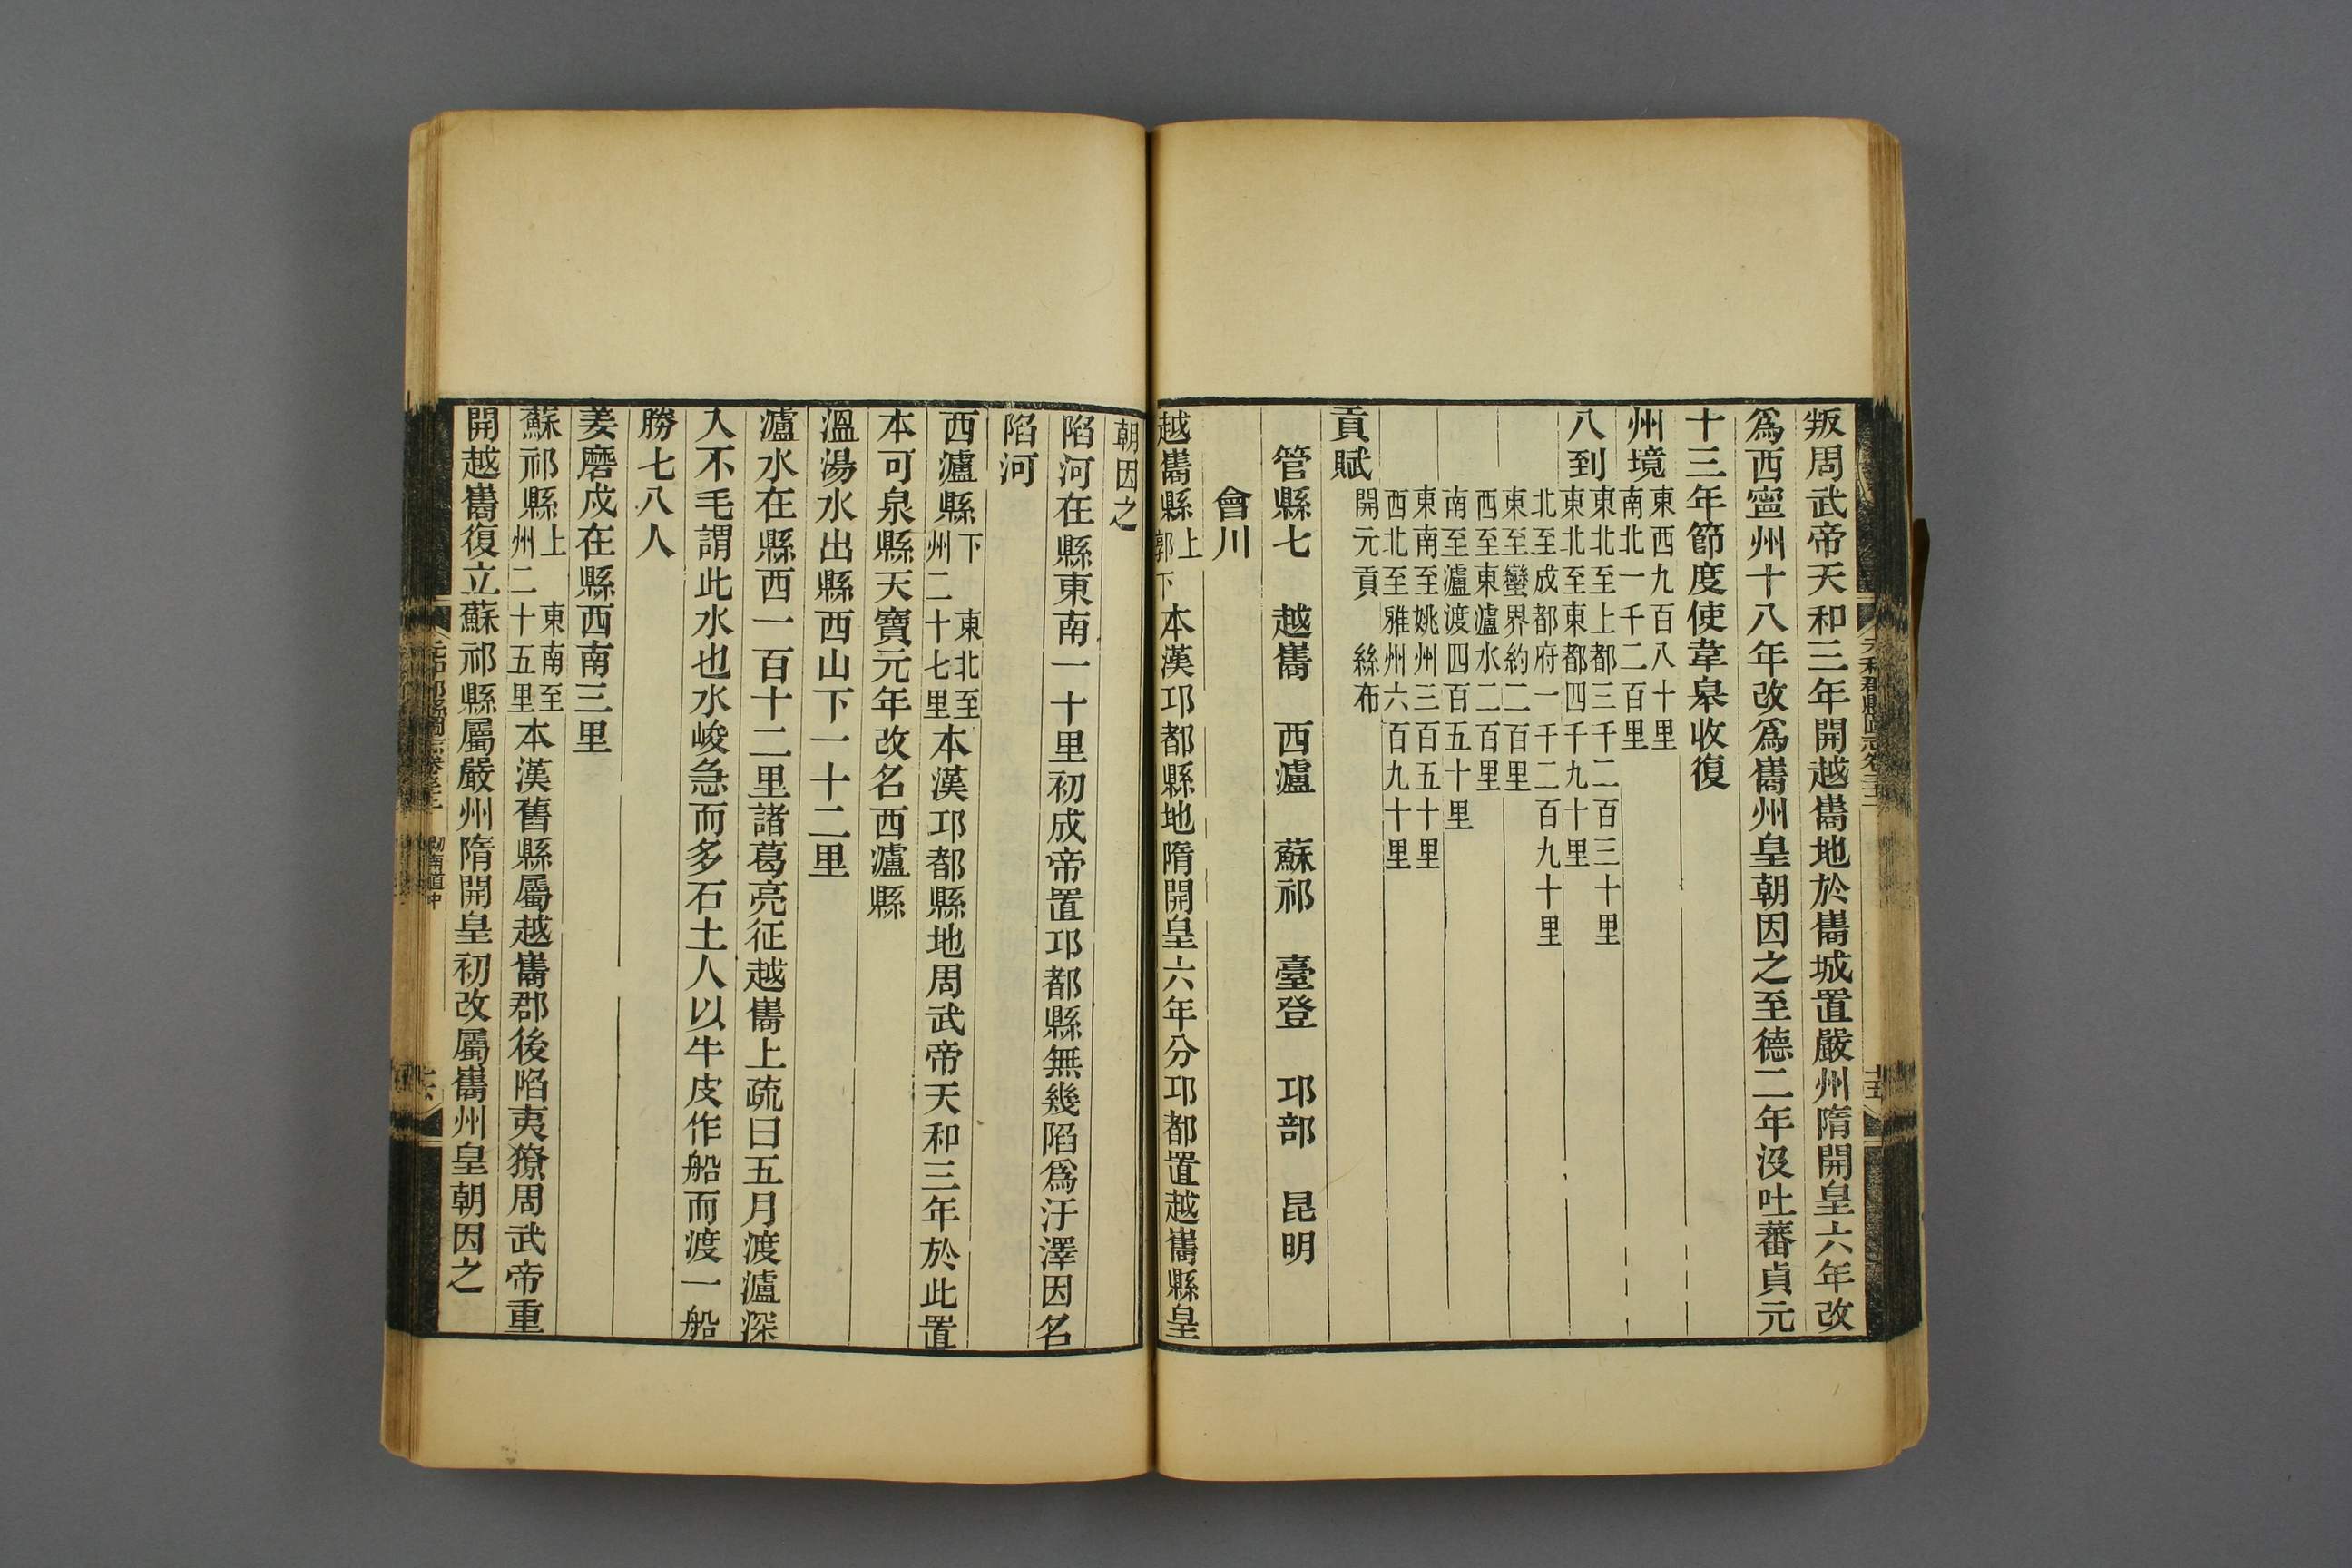 叛周武帝天和三年開越巂地於巂城置嚴州隋開皇六年改
爲西寧州十八年改爲巂州皇朝因之至德二年沒吐蕃貞元
十三年節度使韋皋收復
州境
東西九百八十里
南北一千二百里
八到
東北至上都三千二百三十里
東北至東都四千九十里
北至成都府一千二百九十里
東至蠻界約二百里
西至東瀘水二百里
南至瀘渡四百五十里
東南至姚州三百五十里
西北至雅州六百九十里
貢賦
開元貢 絲布
管縣七 越巂 西瀘 蘇祁 臺登 邛部 昆明
會川
越巂縣上郭下本漢邛都縣地隋開皇六年分邛都置越巂縣皇
朝因之
陷河在縣東南一十里初成帝置邛都縣無幾陷爲汙澤因名
陷河
西瀘縣下東北至州二十七里本漢邛都縣地周武帝天和三年於此置
本可泉縣天寶元年改名西瀘縣
溫湯水出縣西山下一十二里
瀘水在縣西一百十二里諸葛亮征越巂上疏曰五月渡瀘深
入不毛謂此水也水峻急而多石土人以牛皮作船而渡一船
勝七八人
姜磨戍在縣西南三里
蘇祁縣上東南至州二十五里本漢舊縣屬越巂郡後陷夷獠周武帝重
開越巂復立蘇祁縣屬嚴州隋開皇初改屬巂州皇朝因之